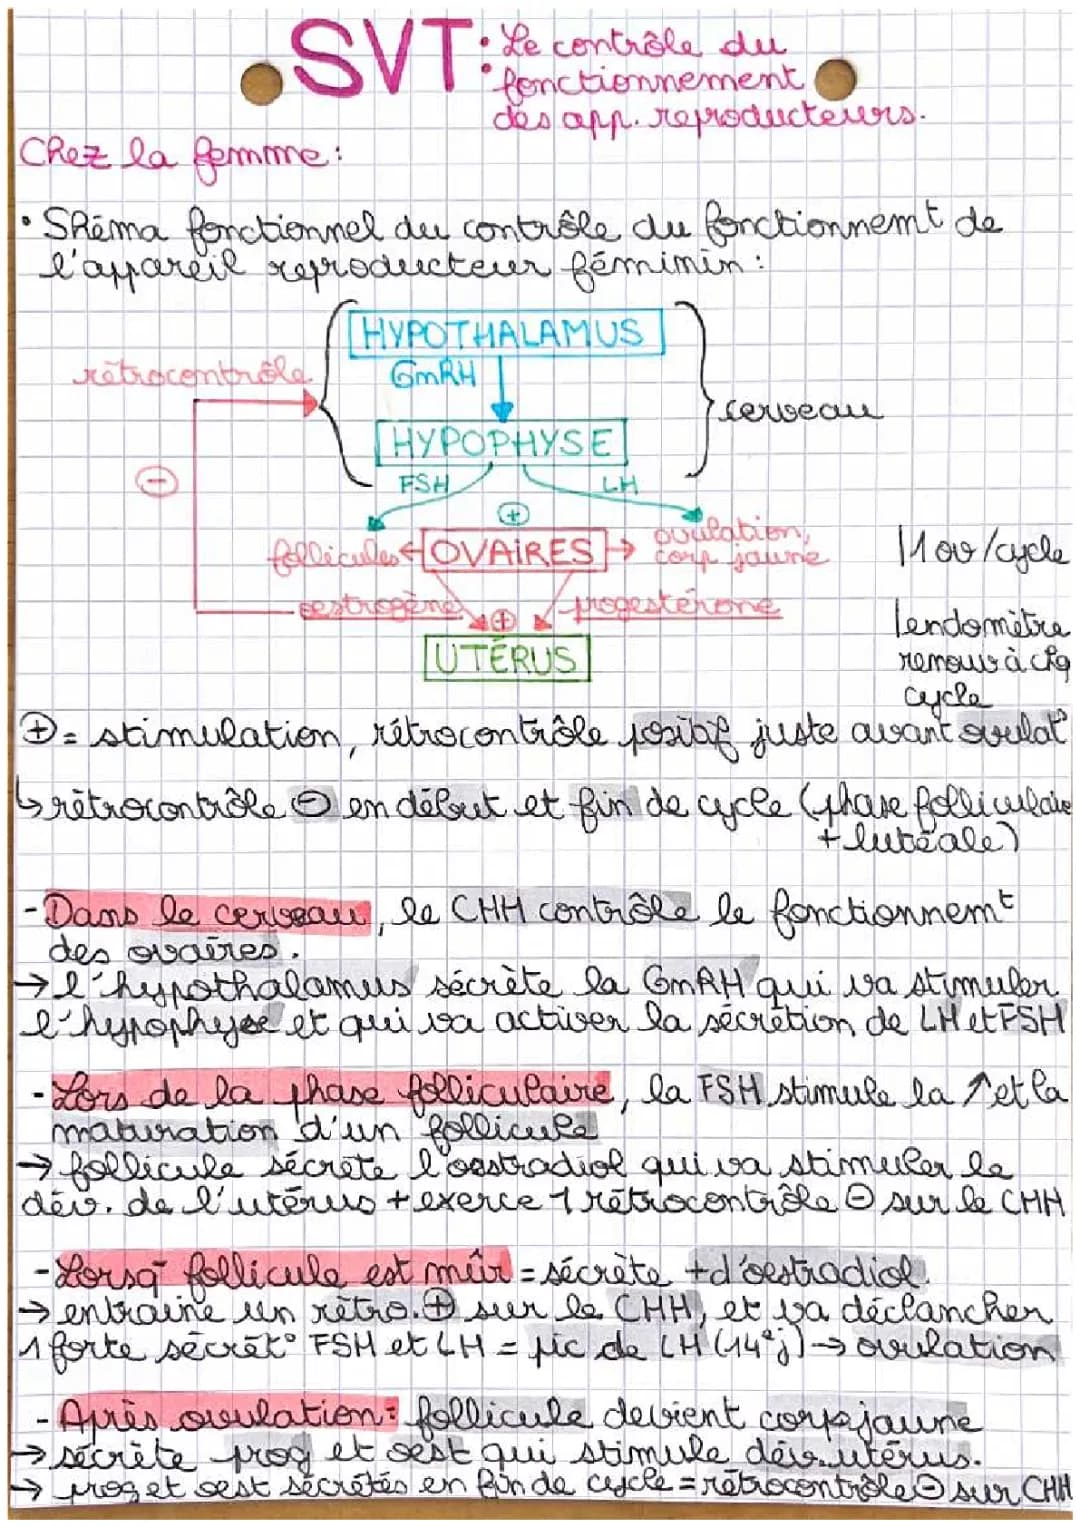 SVT: Le contrôle du
fonctionnement
des app. reproducteurs.
Chez la femme:
• Shéma fonctionnel du contrôle du fonctionnemt de
l'appareil reproducteur féminin:
HYPOTHALAMUS
rétrocontrôle
GmRH
cerveau
HYPOPHYSE
-
FSH
LH
+
follicules
OVAIRES
ovulation,
corp jaune
1 1 ov/cycle
oestrogène
+
progestérone
UTÉRUS
lendomètre
renouv à chq
cycle
⊕ = stimulation, rétrocontrôle positif juste avant ovulat°
↳ rétrocontrôle ⊖ en début et fin de cycle (phase folliculaire
+ lutéale)
- Dans le cerveau, le CHH contrôle le fonctionnemt
des ovaires.
→ l'hypothalamus sécrète la GmRH qui va stimuler
l'hypophyse et qui va activer la sécrétion de LH et FSH
- Lors de la phase folliculaire, la FSH stimule la ↑ et la
maturation d'un follicule
→ follicule sécrète l'oestradiol qui va stimuler le
dév. de l'utérus + exerce 1 rétrocontrôle ⊖ sur le CHH
- Lorsq̄ follicule est mûr = sécrète + d'oestradiol.
→ entraine un rétro. ⊕ sur le CHH, et va déclancher
1 forte sécrét° FSH et LH = pic de LH (14ej) → ovulation
- Après ovulation: follicule devient corps jaune
→ sécrète prog et oest qui stimule dév. utérus.
→ prog et oest sécrétés en fin de cycle = rétrocontrôle ⊖ sur CHH